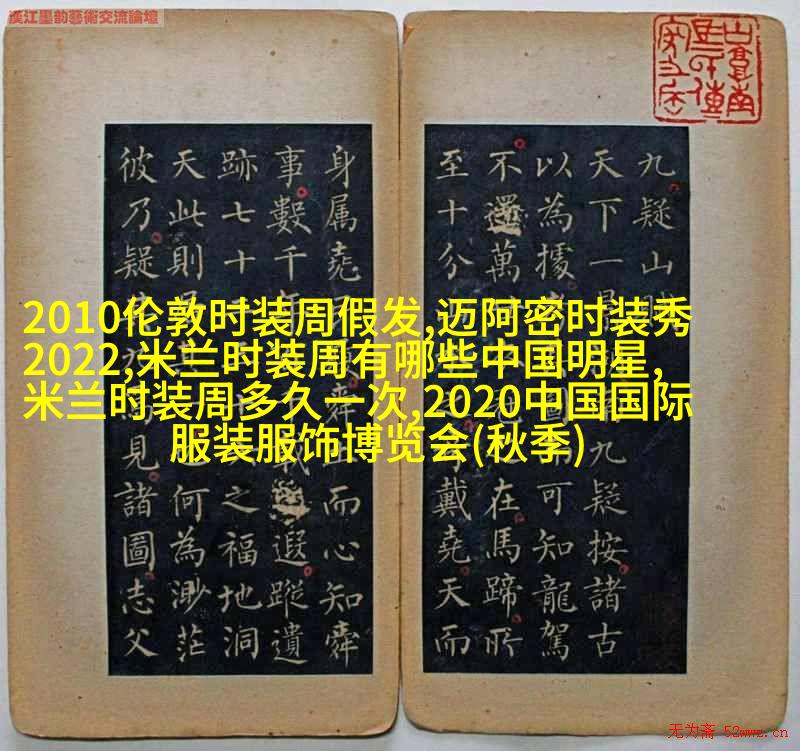 漢江墨韵藝術交流論壇
九疑山賦
天下一景九疑按諸古
以為據圖可知龍駕
不還萬在馬蹄所
至十分戴堯天而
身属堯舜而心知舜
事數千年載遐蹤遺
跡七十之福地洞
天此則何為渺茫
彼乃疑見諸圖志父
2010伦敦时装周假发,迈阿密时装秀
2022,米兰时装周有哪些中国明星,
米兰时装周多久一次,2020中国国际
服装服饰博览会(秋季)
无为斋 52wwz.cn